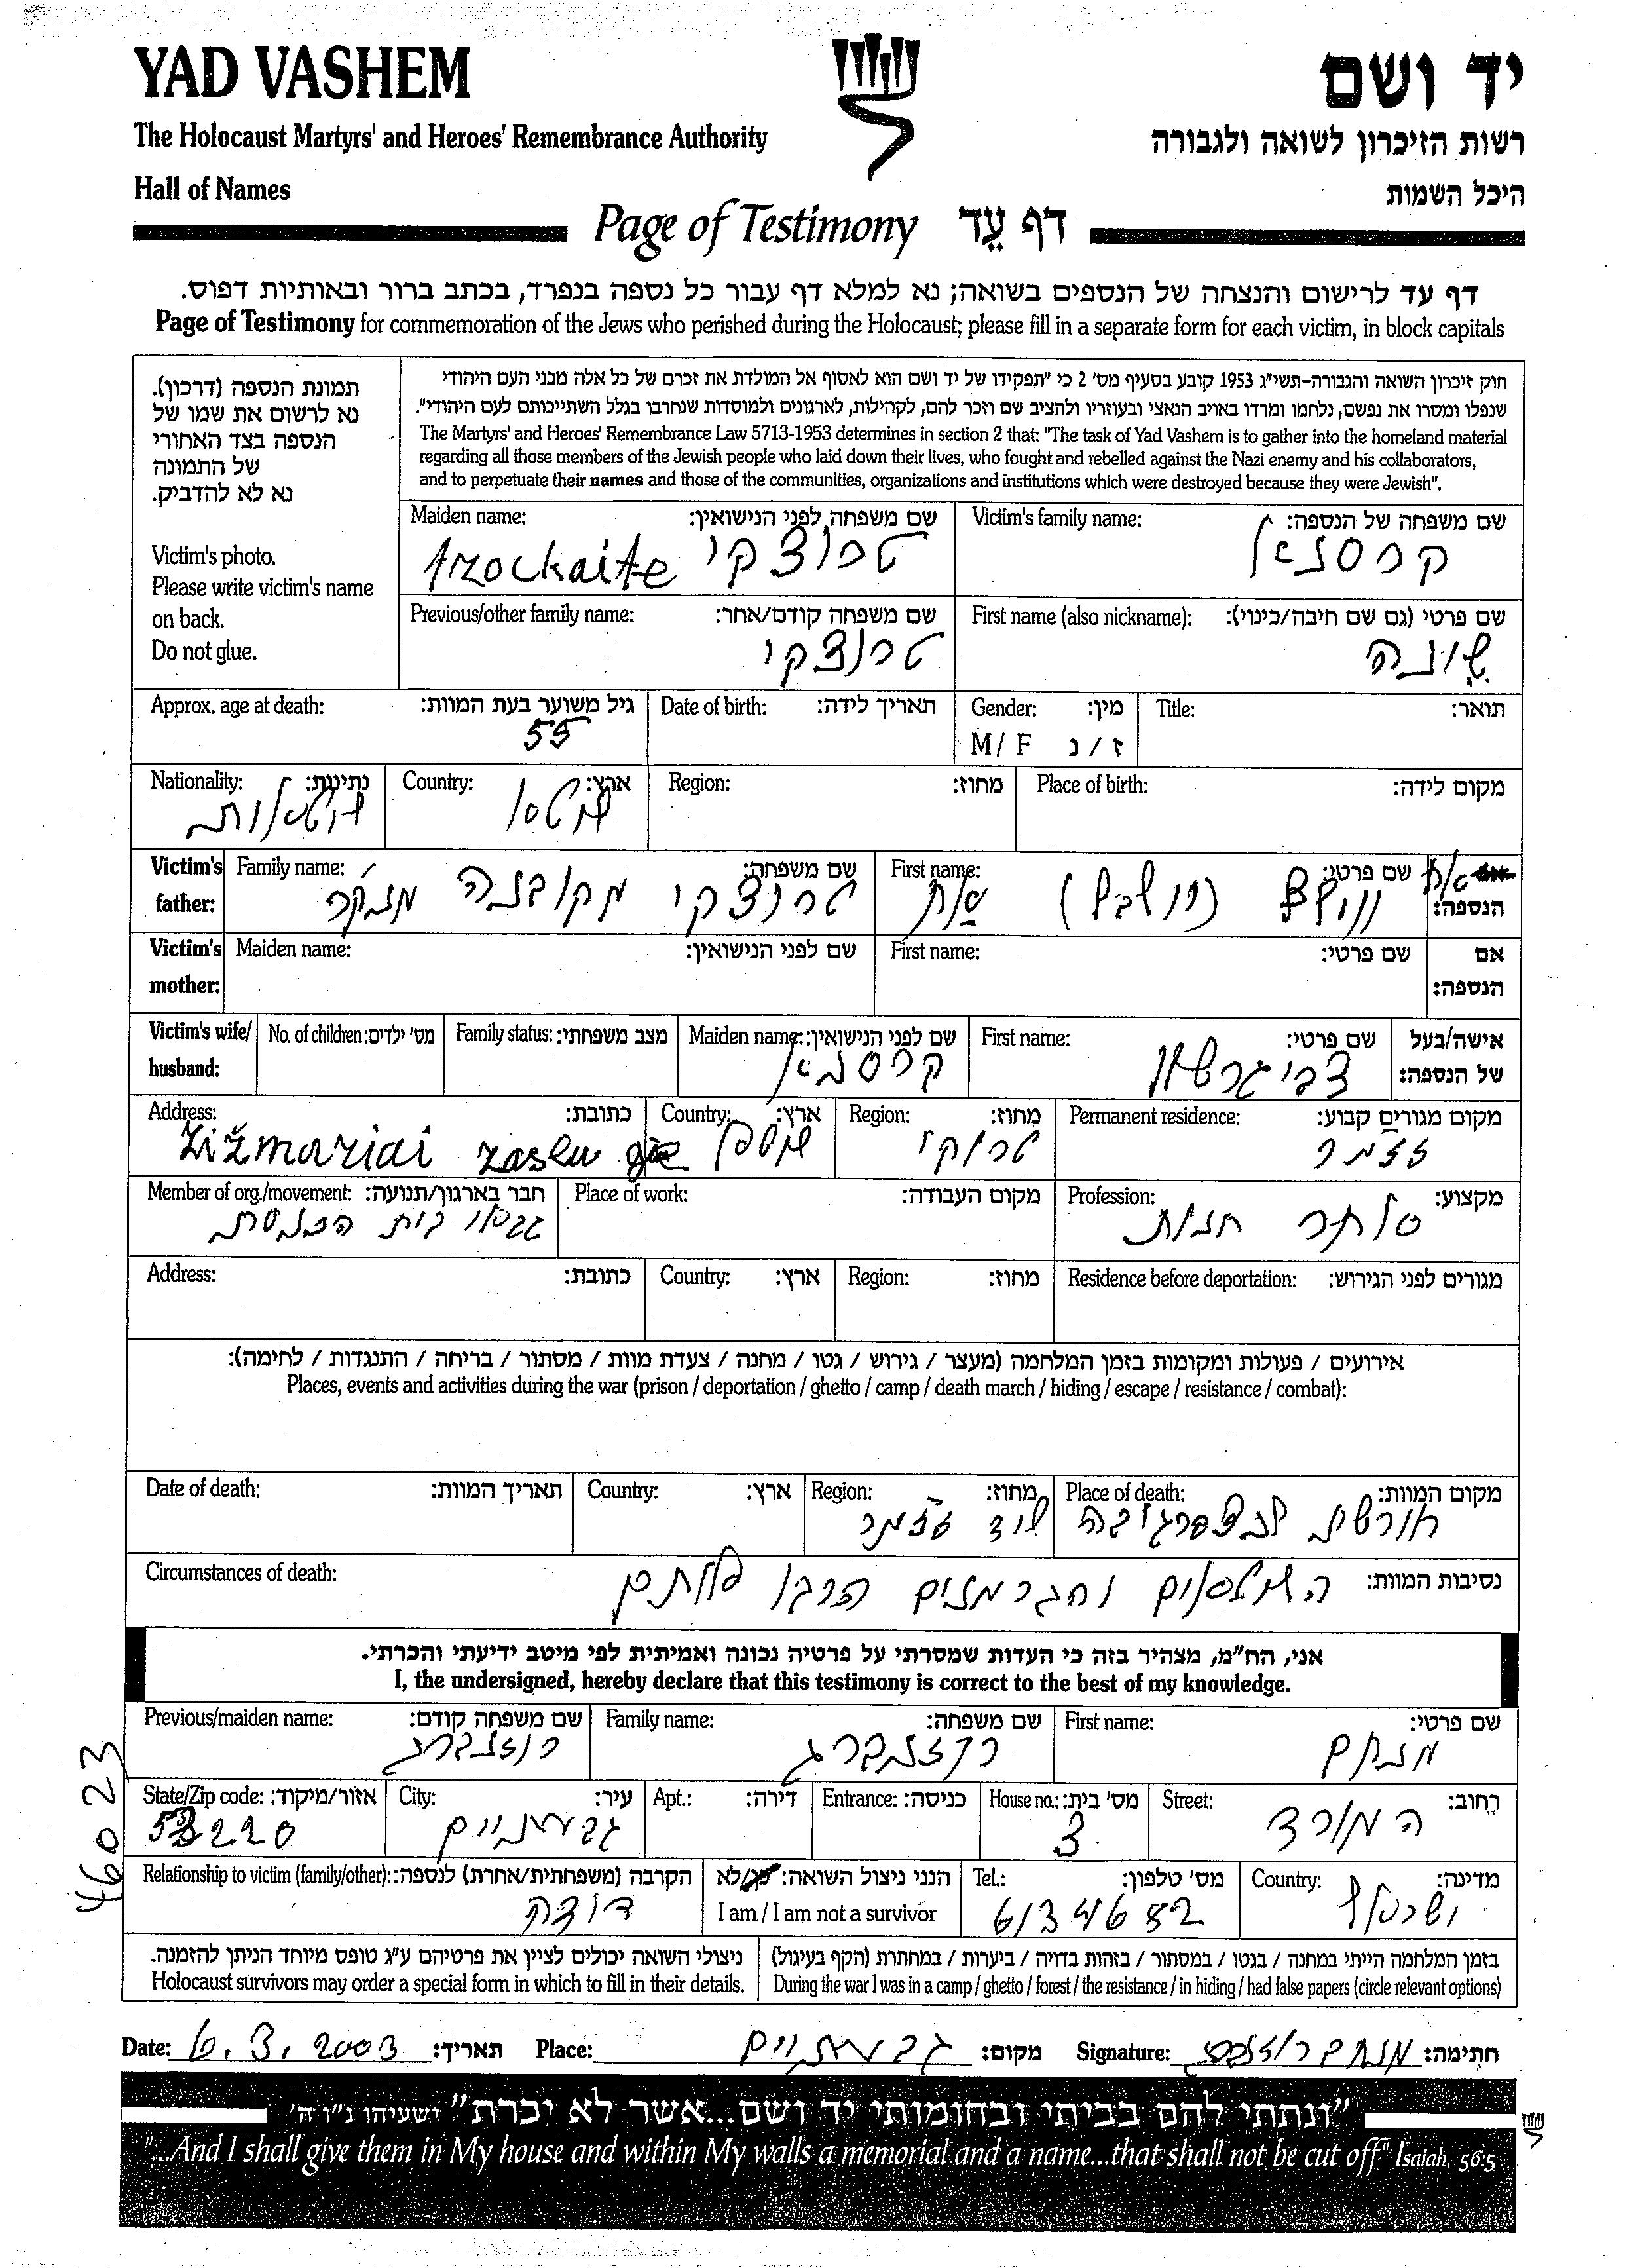 YAD VASHEM
יד ושם
The Holocaust Martyrs' and Heroes' Remembrance Authority
רשות הזיכרון לשואה ולגבורה
Hall of Names
היכל השמות
Page of Testimony דף עֵד
דף עד לרישום והנצחה של הנספים בשואה; נא למלא דף עבור כל נספה בנפרד, בכתב ברור ובאותיות דפוס.
Page of Testimony for commemoration of the Jews who perished during the Holocaust; please fill in a separate form for each victim, in block capitals
תמונת הנספה (דרכון).
נא לרשום את שמו של
הנספה בצד האחורי
של התמונה
נא לא להדביק.
Victim's photo.
Please write victim's name
on back.
Do not glue.
חוק זיכרון השואה והגבורה-תשי"ג 1953 קובע בסעיף מס' 2 כי "תפקידו של יד ושם הוא לאסוף אל המולדת את זכרם של כל אלה מבני העם היהודי
שנפלו ומסרו את נפשם, נלחמו ומרדו באויב הנאצי ובעוזריו ולהציב שם וזכר להם, לקהילות, לארגונים ולמוסדות שנחרבו בגלל השתייכותם לעם היהודי".
The Martyrs' and Heroes' Remembrance Law 5713-1953 determines in section 2 that: "The task of Yad Vashem is to gather into the homeland material
regarding all those members of the Jewish people who laid down their lives, who fought and rebelled against the Nazi enemy and his collaborators,
and to perpetuate their names and those of the communities, organizations and institutions which were destroyed because they were Jewish".
Maiden name: שם משפחה לפני הנישואין: Victim's family name: שם משפחה של הנספה:
trockaite טרוצקי קרסנאן
Previous/other family name: שם משפחה קודם/אחר: First name (also nickname): שם פרטי (גם שם חיבה/כינוי):
טרוצקי שונה
Approx. age at death: גיל משוער בעת המוות: Date of birth: תאריך לידה: Gender: מין: Title: תואר:
55 M/ F ז / נ
Nationality: נתינות: Country: ארץ: Region: מחוז: Place of birth: מקום לידה:
ליטאית ליטא
Victim's Family name: שם משפחה: First name: שם פרטי:
father: טרוצקי הנספה:
Victim's Maiden name: שם לפני הנישואין: First name: שם פרטי: אם
mother: הנספה:
Victim's wife/ No. of children: מס' ילדים: Family status: מצב משפחתי: Maiden name: שם לפני הנישואין: First name: שם פרטי: אישה/בעל
husband: קרסנאן צבי גרשון של הנספה:
Address: כתובת: Country: ארץ: Region: מחוז: Permanent residence: מקום מגורים קבוע:
Žižmariai zaslu ליטא טרוקי זזמר
Member of org./movement: חבר בארגון/תנועה: Place of work: מקום העבודה: Profession: מקצוע:
גבאי בית הכנסת סוחר חנות
Address: כתובת: Country: ארץ: Region: מחוז: Residence before deportation: מגורים לפני הגירוש:
אירועים / פעולות ומקומות בזמן המלחמה (מעצר / גירוש / גטו / מחנה / צעדת מוות / מסתור / בריחה / התנגדות / לחימה):
Places, events and activities during the war (prison / deportation / ghetto / camp / death march / hiding / escape / resistance / combat):
Date of death: תאריך המוות: Country: ארץ: Region: מחוז: Place of death: מקום המוות:
ליד זזמר חורשת
Circumstances of death: נסיבות המוות:
הליטאים והגרמנים הרגו אותם
אני, הח"מ, מצהיר בזה כי העדות שמסרתי על פרטיה נכונה ואמיתית לפי מיטב ידיעתי והכרתי.
I, the undersigned, hereby declare that this testimony is correct to the best of my knowledge.
Previous/maiden name: שם משפחה קודם: Family name: שם משפחה: First name: שם פרטי:
רוזנברג רוזנברג מנחם
State/Zip code: אזור/מיקוד: City: עיר: Apt.: דירה: Entrance: כניסה: House no.: מס' בית: Street: רחוב:
53220 גבעתיים 3 המורד
Relationship to victim (family/other): הקרבה (משפחתית/אחרת) לנספה: הנני ניצול השואה: כן/לא Tel.: מס' טלפון: Country: מדינה:
דודה I am / I am not a survivor 6134682 ישראל
ניצולי השואה יכולים לציין את פרטיהם ע"ג טופס מיוחד הניתן להזמנה. בזמן המלחמה הייתי במחנה / בגטו / במסתור / בזהות בדויה / ביערות / במחתרת (הקף בעיגול)
Holocaust survivors may order a special form in which to fill in their details. During the war I was in a camp / ghetto / forest / the resistance / in hiding / had false papers (circle relevant options)
46023
Date: 6.3.2003 תאריך: Place: גבעתיים מקום: Signature: מנחם רוזנברג חתימה:
"ונתתי להם בביתי ובחומותי יד ושם...אשר לא יכרת" ישעיהו נ"ו ה'
"...And I shall give them in My house and within My walls a memorial and a name...that shall not be cut off" Isaiah, 56:5